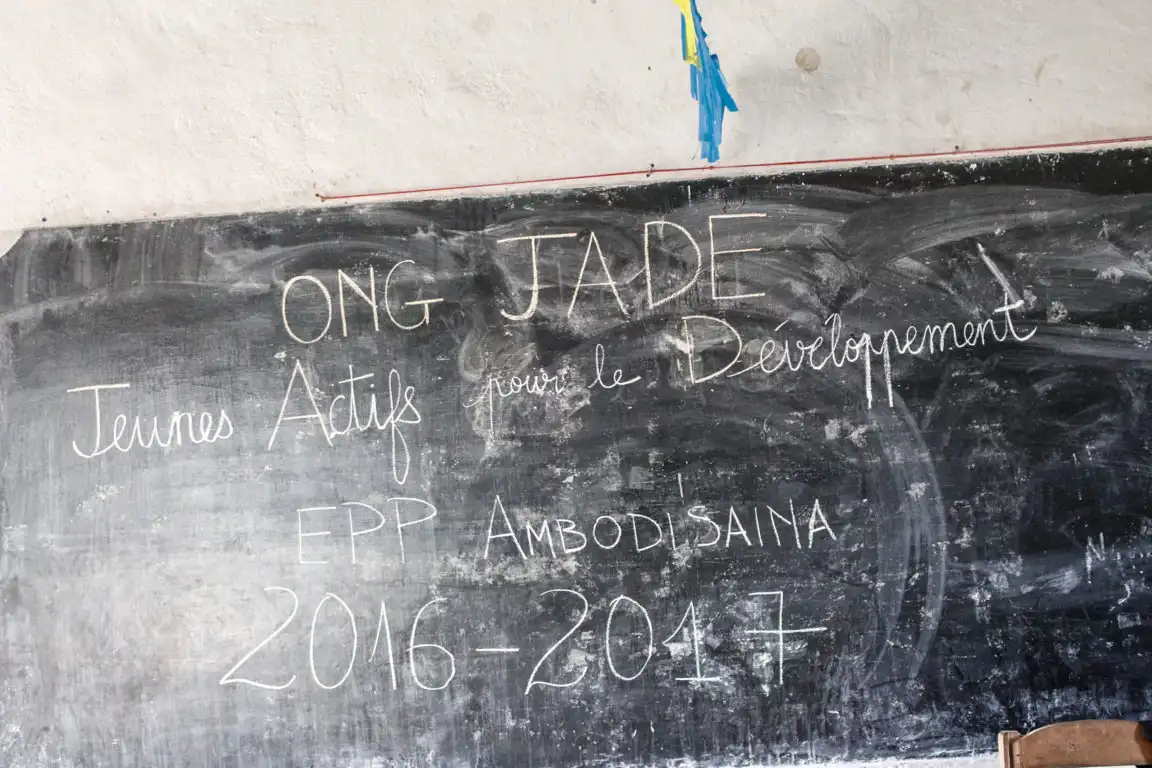 ONG JADE
Jeunes Actifs pour le Développement
EPP AMBODISAINA
2016-2017